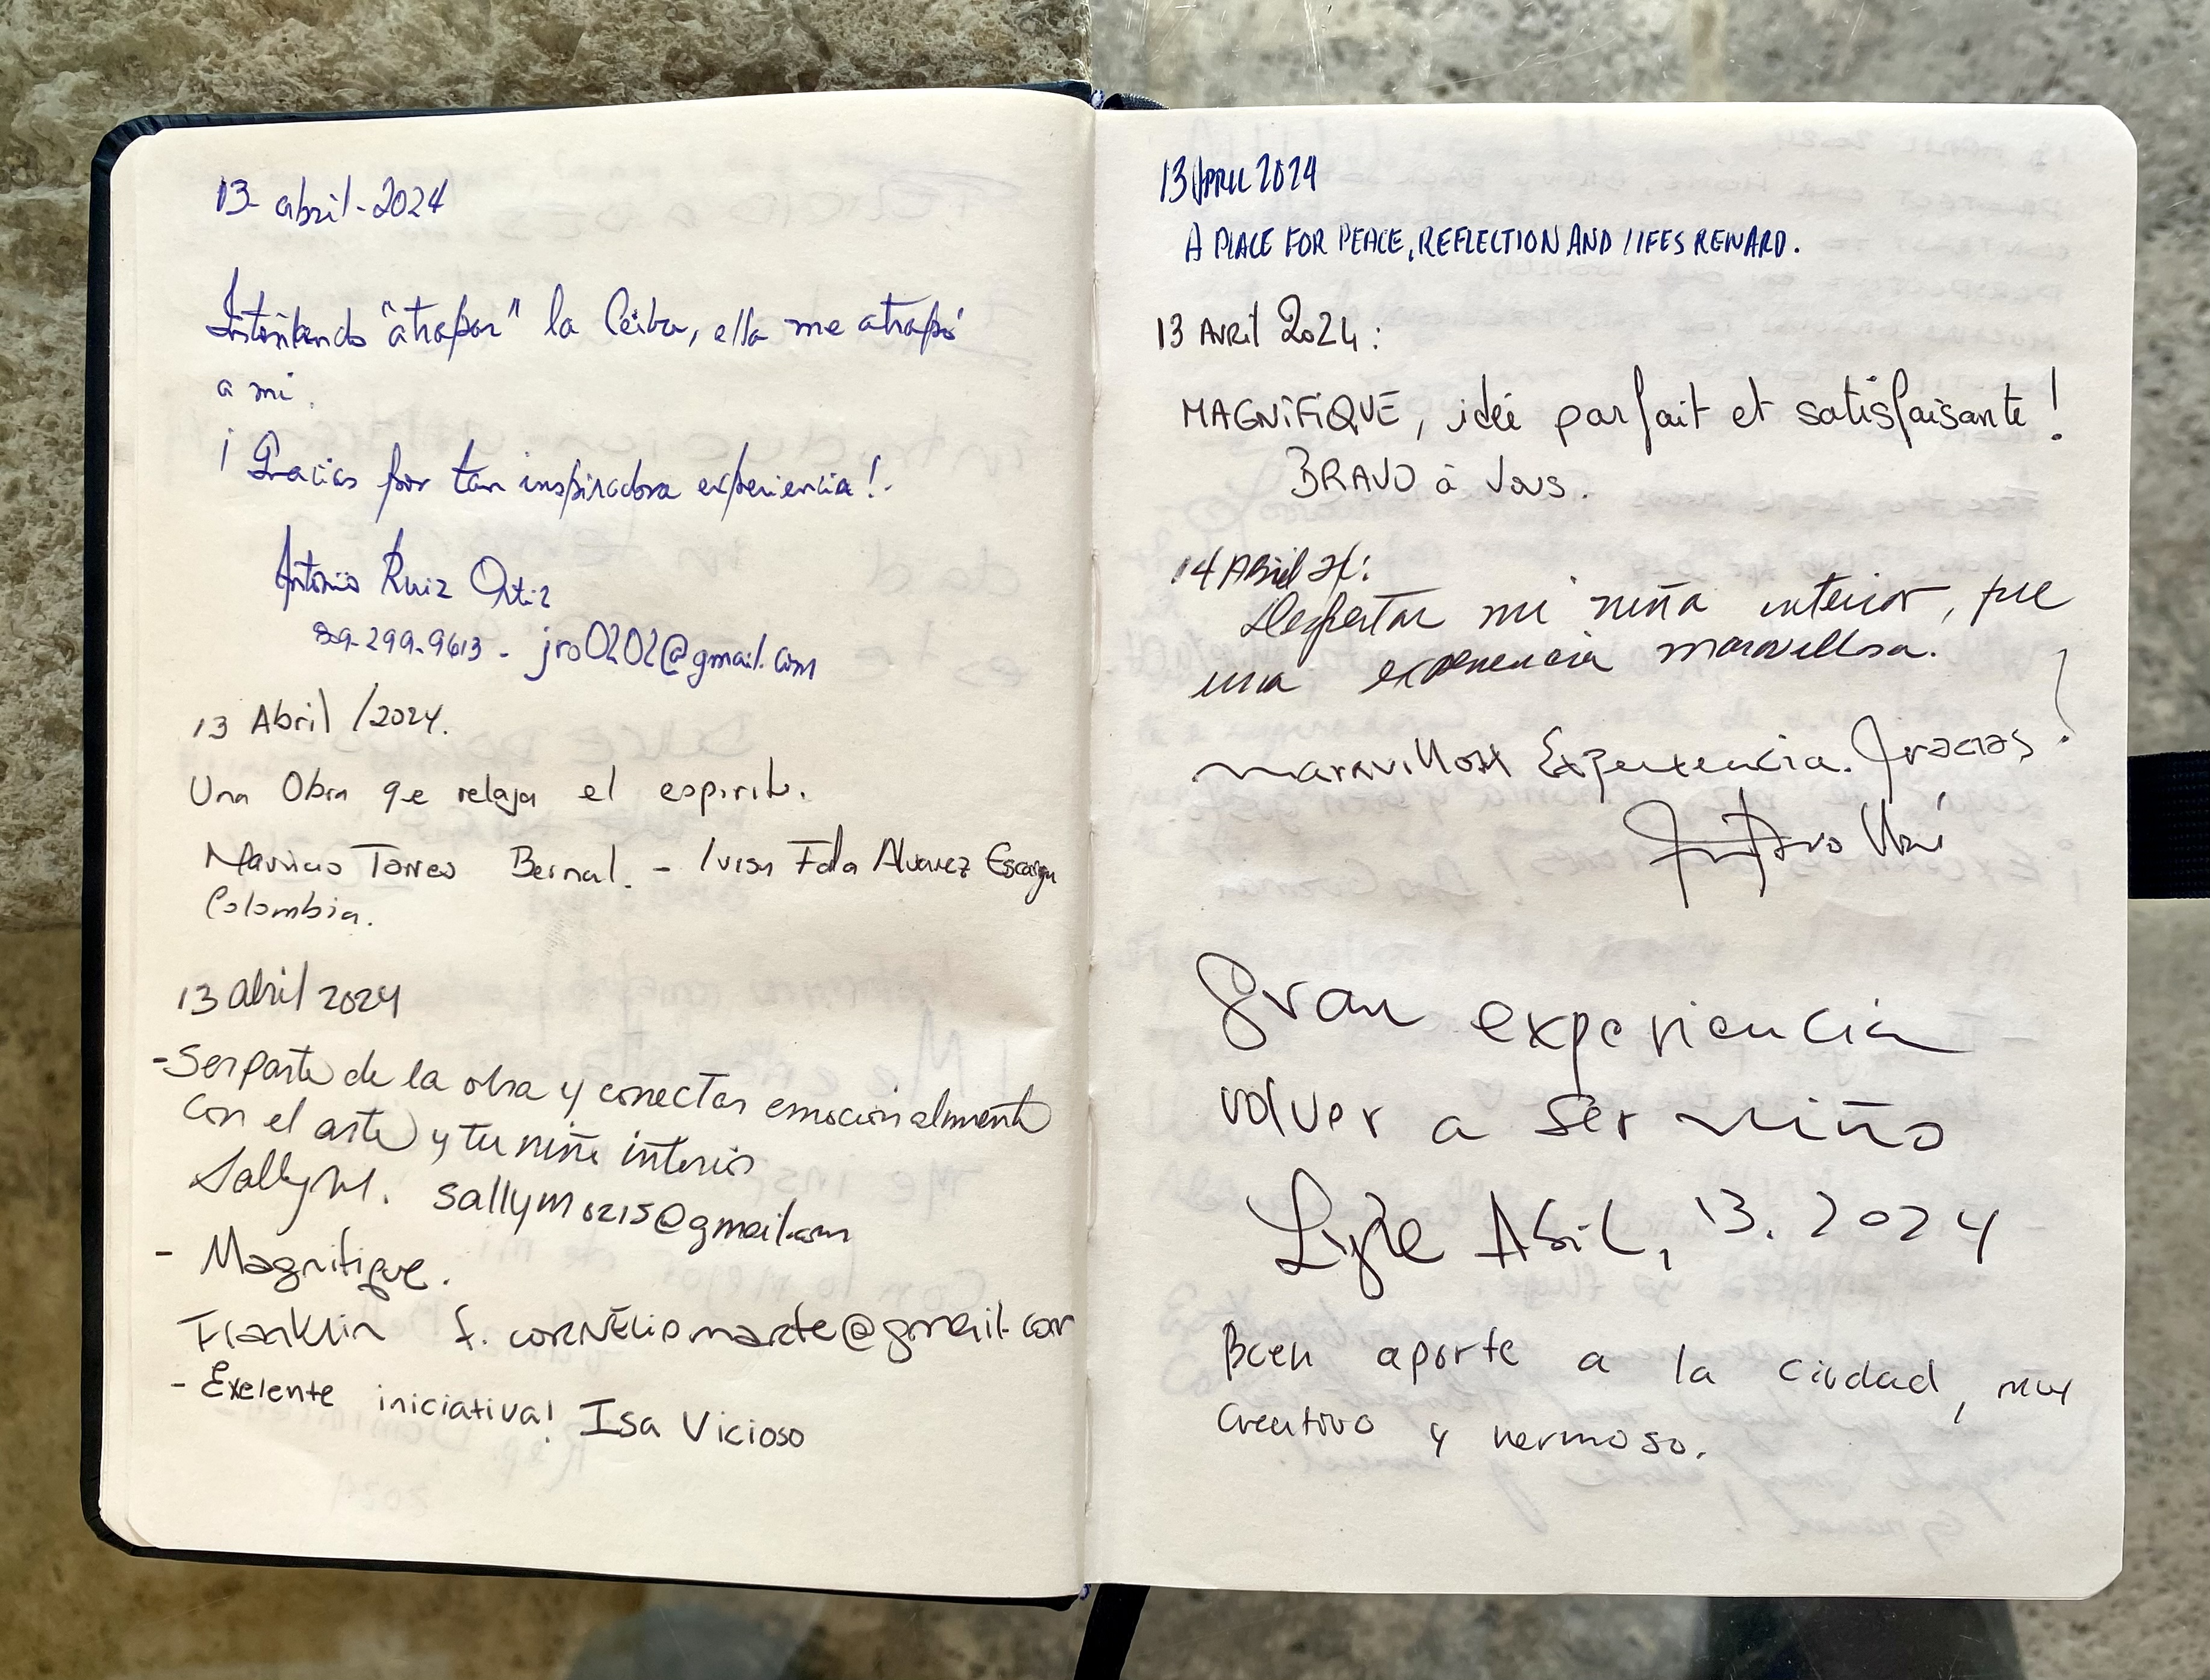 13 abril-2024
Intentando "atrapar" la Ceiba, ella me atrapó
a mi.
¡Gracias por tan inspiradora experiencia!.
Antonio Ruiz Ortiz
299.9613 - jro0202@gmail.com
13 Abril /2024.
Una Obra qe relaja el espiritu.
Mauricio Torres Bernal. - Alvarez
Colombia.
13 abril 2024
-Ser parte de la obra y conectar emocionalmente
con el arte y tu niñe interio
Sally M.
- Magnifique.
Franklin f.corneliomarte@gmail.com
- Exelente iniciativa! Isa Vicioso
13 APRIL 2024
A PLACE FOR PEACE, REFLECTION AND LIFES REWARD.
13 AVRIL 2024:
MAGNIFIQUE, idée parfait et satisfaisante!
BRAVO à vous.
14 Abril 24:
Despertar mi niña interior, fue
una experiencia maravillosa.
Maravillosa Experiencia. Gracias!
Gustavo
Gran experiencia
volver a ser niño
Abil, 13. 2024
Buen aporte a la ciudad, muy
creativo y hermoso.